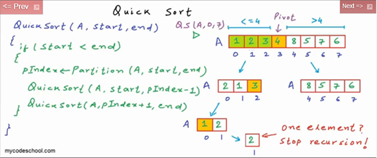 ← Prev
Quick Sort
Next →
QuickSort (A, start, end)
{
if (start < end)
{
pIndex ← Partition (A, start, end)
QuickSort (A, start, pIndex-1)
QuickSort (A, pIndex+1, end)
}
}
Q.S (A, 0, 7)
Pivot
<= 4
>4
A 1 2 2 3 4 8 5 7 6
0 1 2 3 4 5 6 7
A 2 1 3
0 1 2
8 5 7 6
4 5 6 7
A 1 2
0 1
2
1
One element?
Stop recursion!
mycodeschool.com